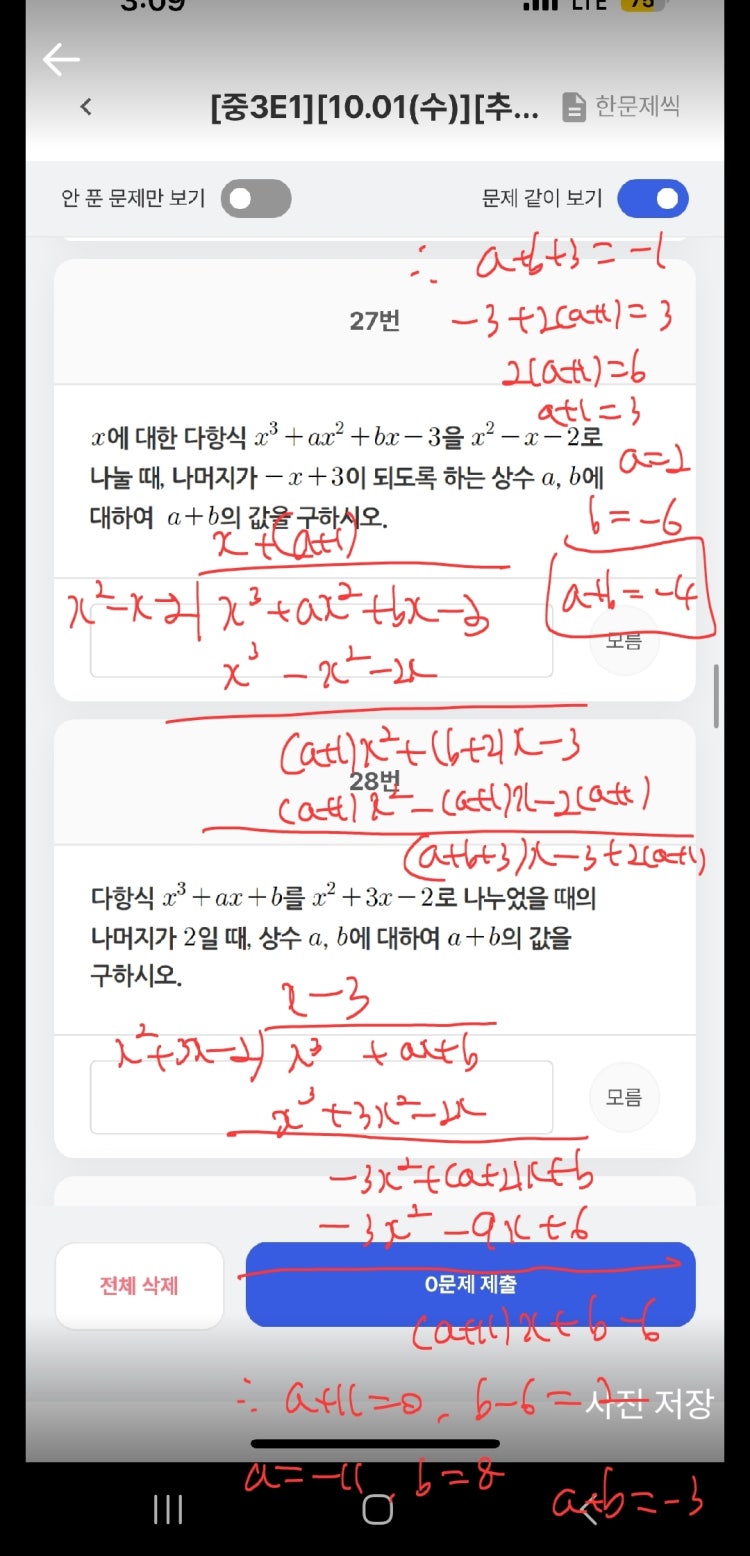 3:09 LTE 75
[중3E1][10.01(수)][추... 한문제씩
안 푼 문제만 보기 문제 같이 보기
∴ a+b+3=-1
27번
-3+2(a+1)=3
2(a+1)=6
a+1=3
x에 대한 다항식 x³+ax²+bx-3을 x²-x-2로
나눌 때, 나머지가 -x+3이 되도록 하는 상수 a, b에
대하여 a+b의 값을 구하시오.
a=2
b=-6
a+b=-4
x+(a+1)
x²-x-2) x³+ax²+bx-3
모름
x³-x²-2x
(a+1)x²+(b+2)x-3
28번
(a+1)x²-(a+1)x-2(a+1)
(a+b+3)x-3+2(a+1)
다항식 x³+ax+b를 x²+3x-2로 나누었을 때의
나머지가 2일 때, 상수 a, b에 대하여 a+b의 값을
구하시오.
x-3
x²+3x-2) x³ +ax+b
모름
x³+3x²-2x
-3x²+(a+2)x+b
-3x²-9x+6
전체 삭제 0문제 제출
(a+11)x+b-6
∴ a+11=0, b-6=2
사진 저장
a=-11, b=8
a+b=-3